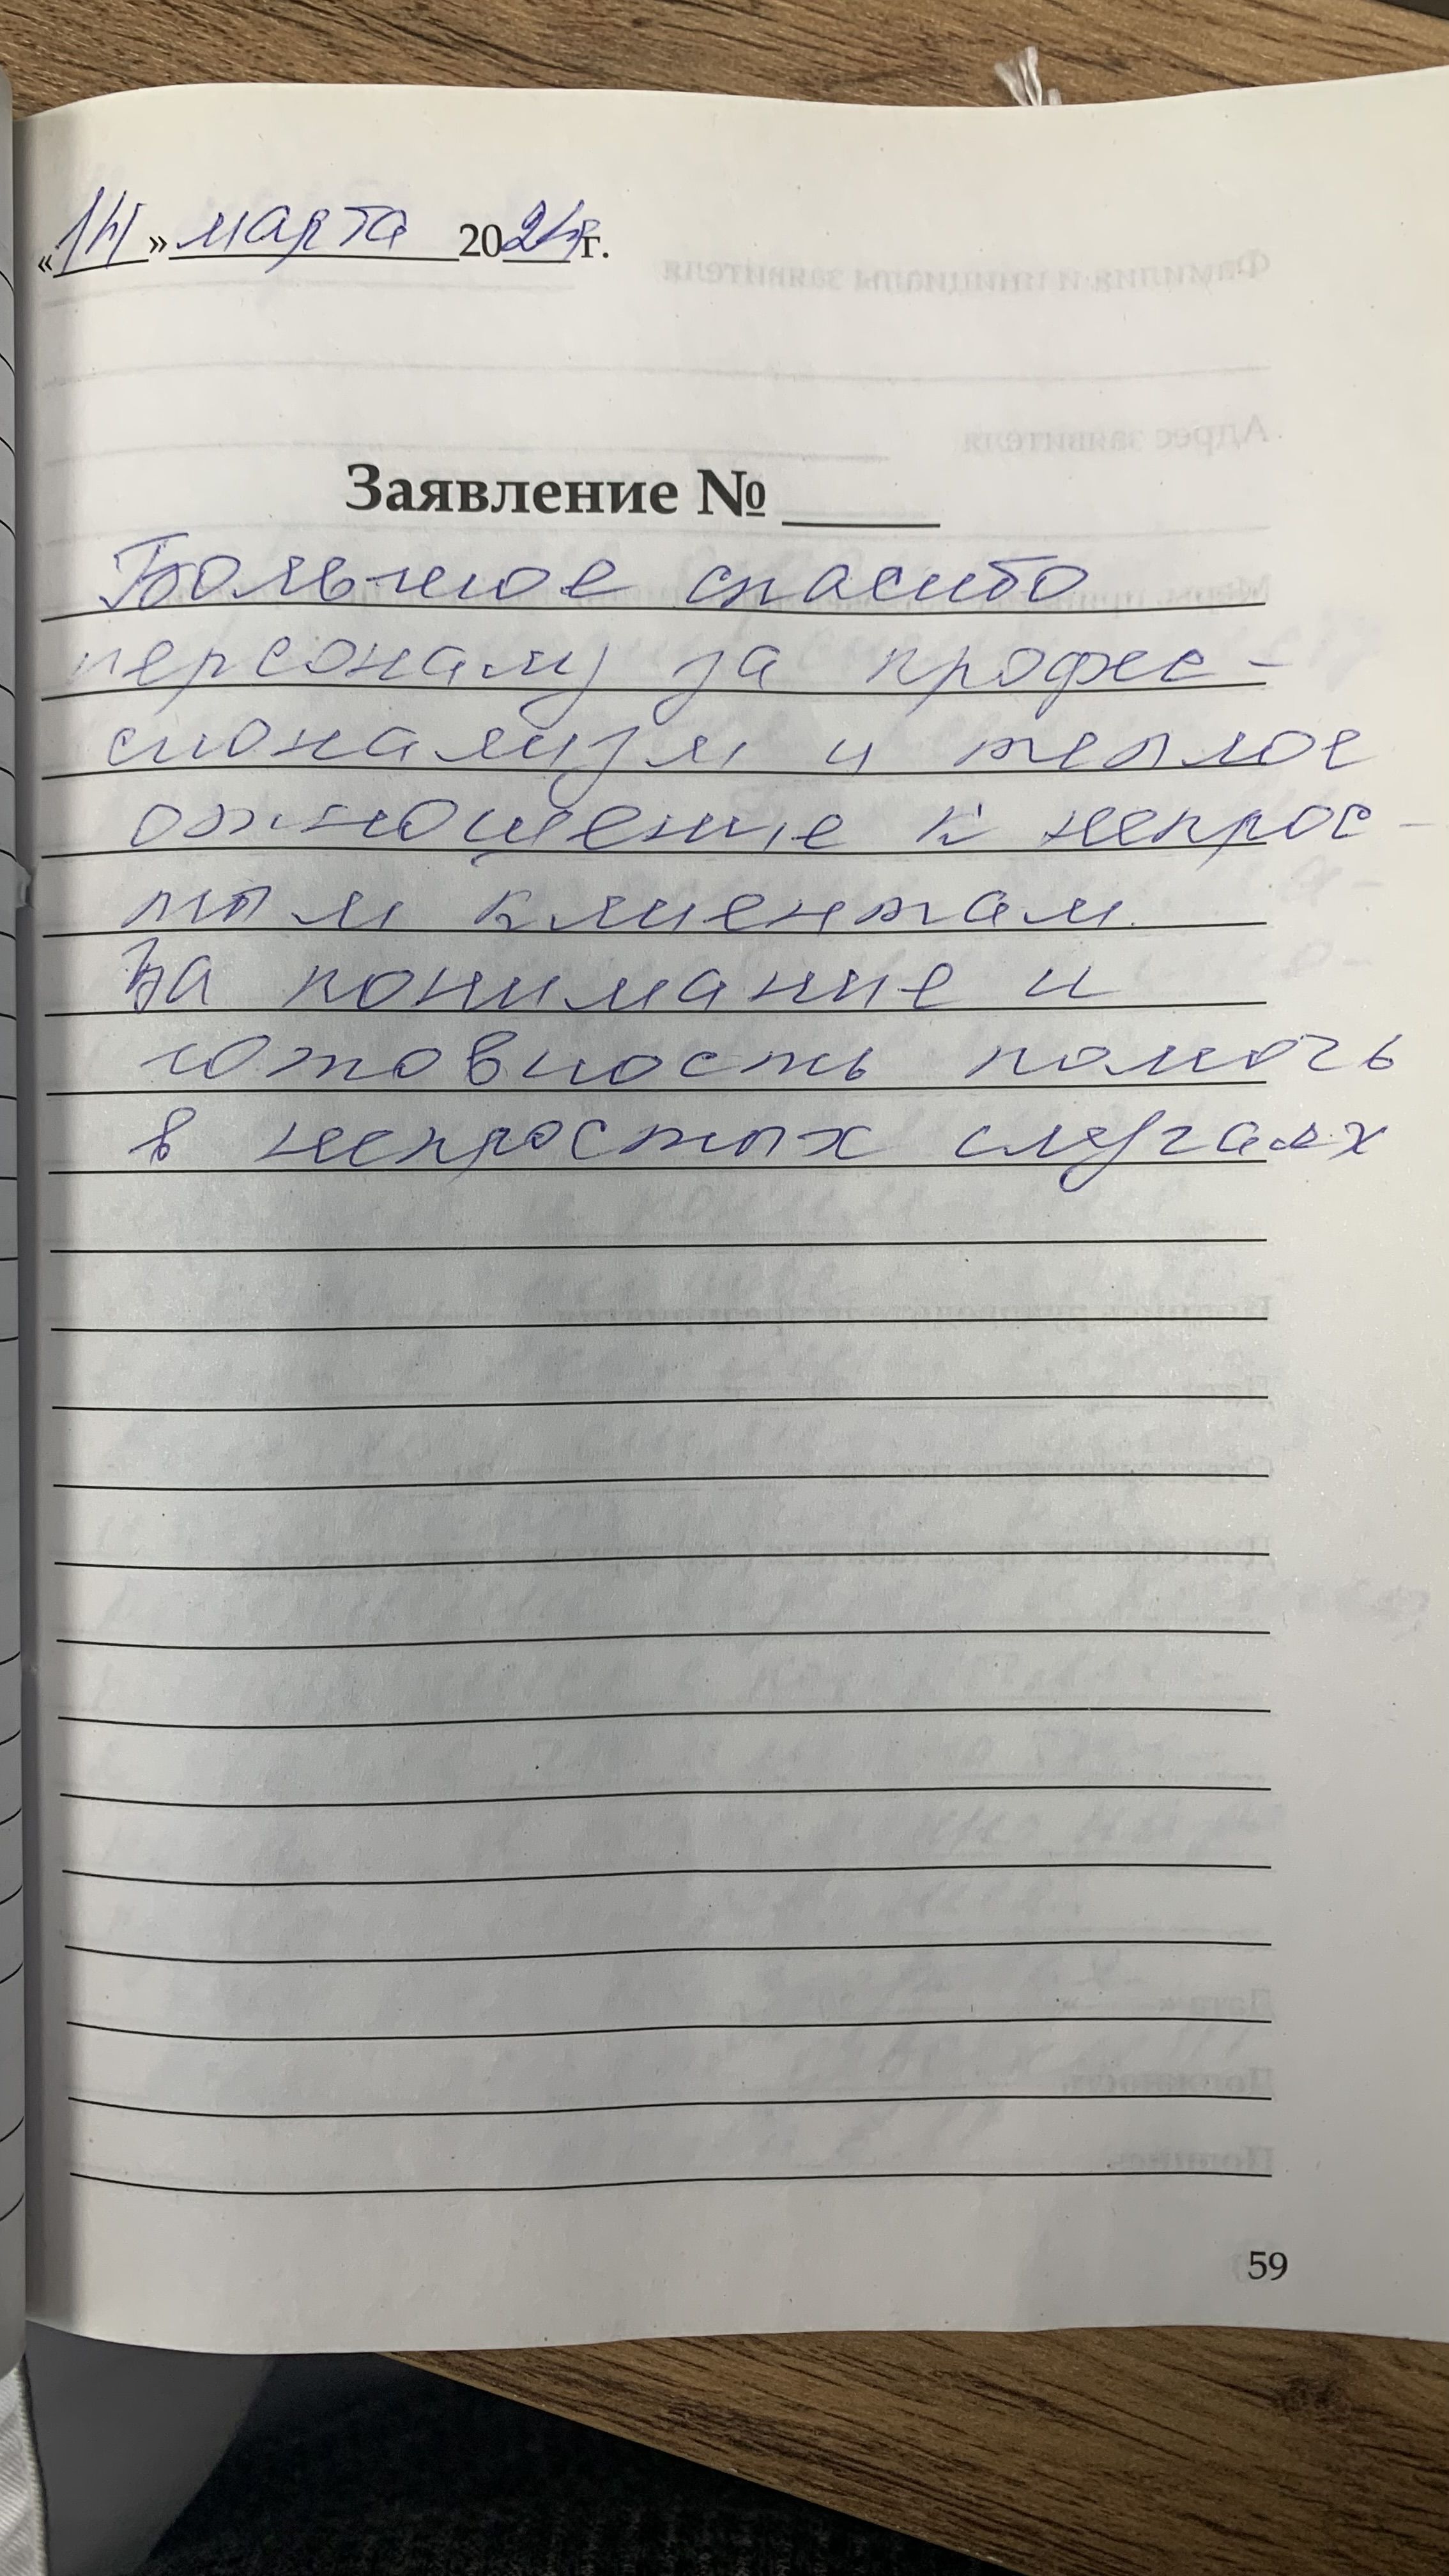 «14» марта 2024г.
Заявление №
Большое спасибо
персоналу за профес-
сионализм и теплое
отношение к непрос-
тым клиентам.
За понимание и
готовность помочь
в непростых случаях
59